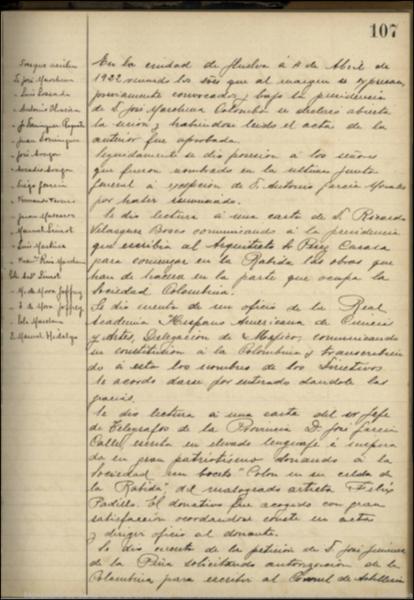 107
Señores asisten
D. José Marchena
" Luis
" Antonio Oliveira
" J. Dominguez Roqueta
" Juan Dominguez
" José Aragon
" Arcadio Aragon
" Diego Garcia
" Fernando
" Juan
" Manuel Siurot
" Luis Martinez
" Ruiz Marchena
" M. de Mora Jaffrey
" J. de Mora Jaffrey
" Marchena
D. Manuel Hidalgo
En la ciudad de Huelva á 4 de Abril de
1922 reunido los Sres que al margen se expresan,
previamente convocados y bajo la presidencia
de D. José Marchena Colombo se declaró abierta
la sesión y habiendose leido el acta de la
anterior fue aprobada.
Seguidamente se dio posesion á los señores
que fueron nombrados en la ultima Junta
General á excepción de D. Antonio Garcia Morales
por haber renunciado.
Se dio lectura á una carta de D. Ricardo
Velazquez Bosco comunicando á la presidencia
que escribia al Arquitecto Sr Perez Carasa
para comenzar en la Rabida las obras que
han de hacerse en la parte que ocupa la
Sociedad Colombina.
Se dio cuenta de un oficio de la Real
Academia Hispano Americana de Ciencias
y Artes, Delegacion de Mejico, comunicando
su constitucion á la Colombina y transcribien
do á esta los nombres de los Directivos
Se acordó darse por enterado dandole las
gracias.
Se dio lectura á una carta del ex Jefe
de Telegrafos de la Provincia D. José Garcia
Calle, escrita en elevado lenguaje é inspira
da en gran patriotismo donando á la
Sociedad un boceto "Colon en su celda de
la Rabida" del malogrado artista Felix
Padillo. El donativo fue acogido con gran
satisfacción acordandose conste en acta
y dirigir oficio al donante.
Se dio cuenta de la peticion de D. José Jimenez
de la Peña solicitando autorizacion de la
Colombina para escribir al Coronel de Artilleria